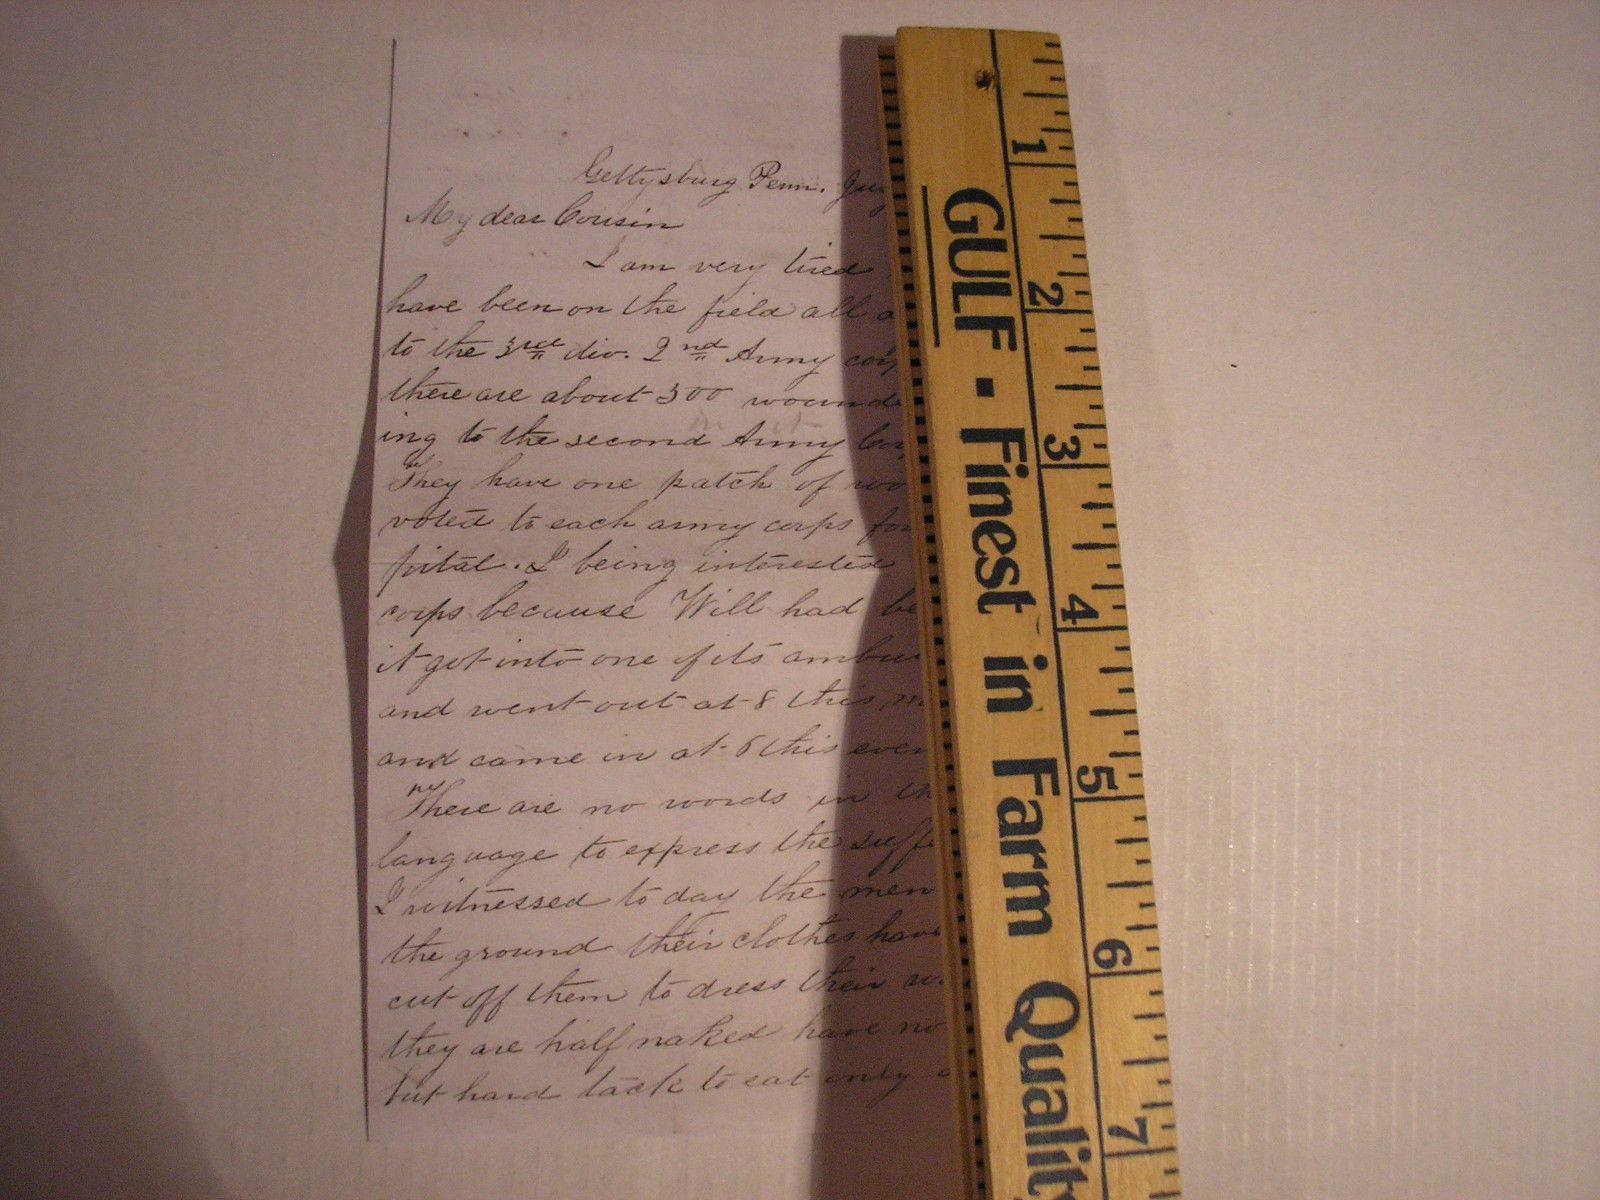 Gettysburg Penn.
My dear Cousin
I am very tired
have been on the field all
to the 3rd div. 2nd Army
there are about 500
ing to the second Army
They have one patch of
voted to each army corps
pital. I being interested
corps because Will had
it got into one of its
and went out at 8 this
and came in at 6 this
There are no words in
language to express the
I witnessed to day the men
the ground their clothes
cut off them to dress their
they are half naked have no
but hard tack to eat only
1
2
3
4
5
6
7
GULF - Finest in Farm